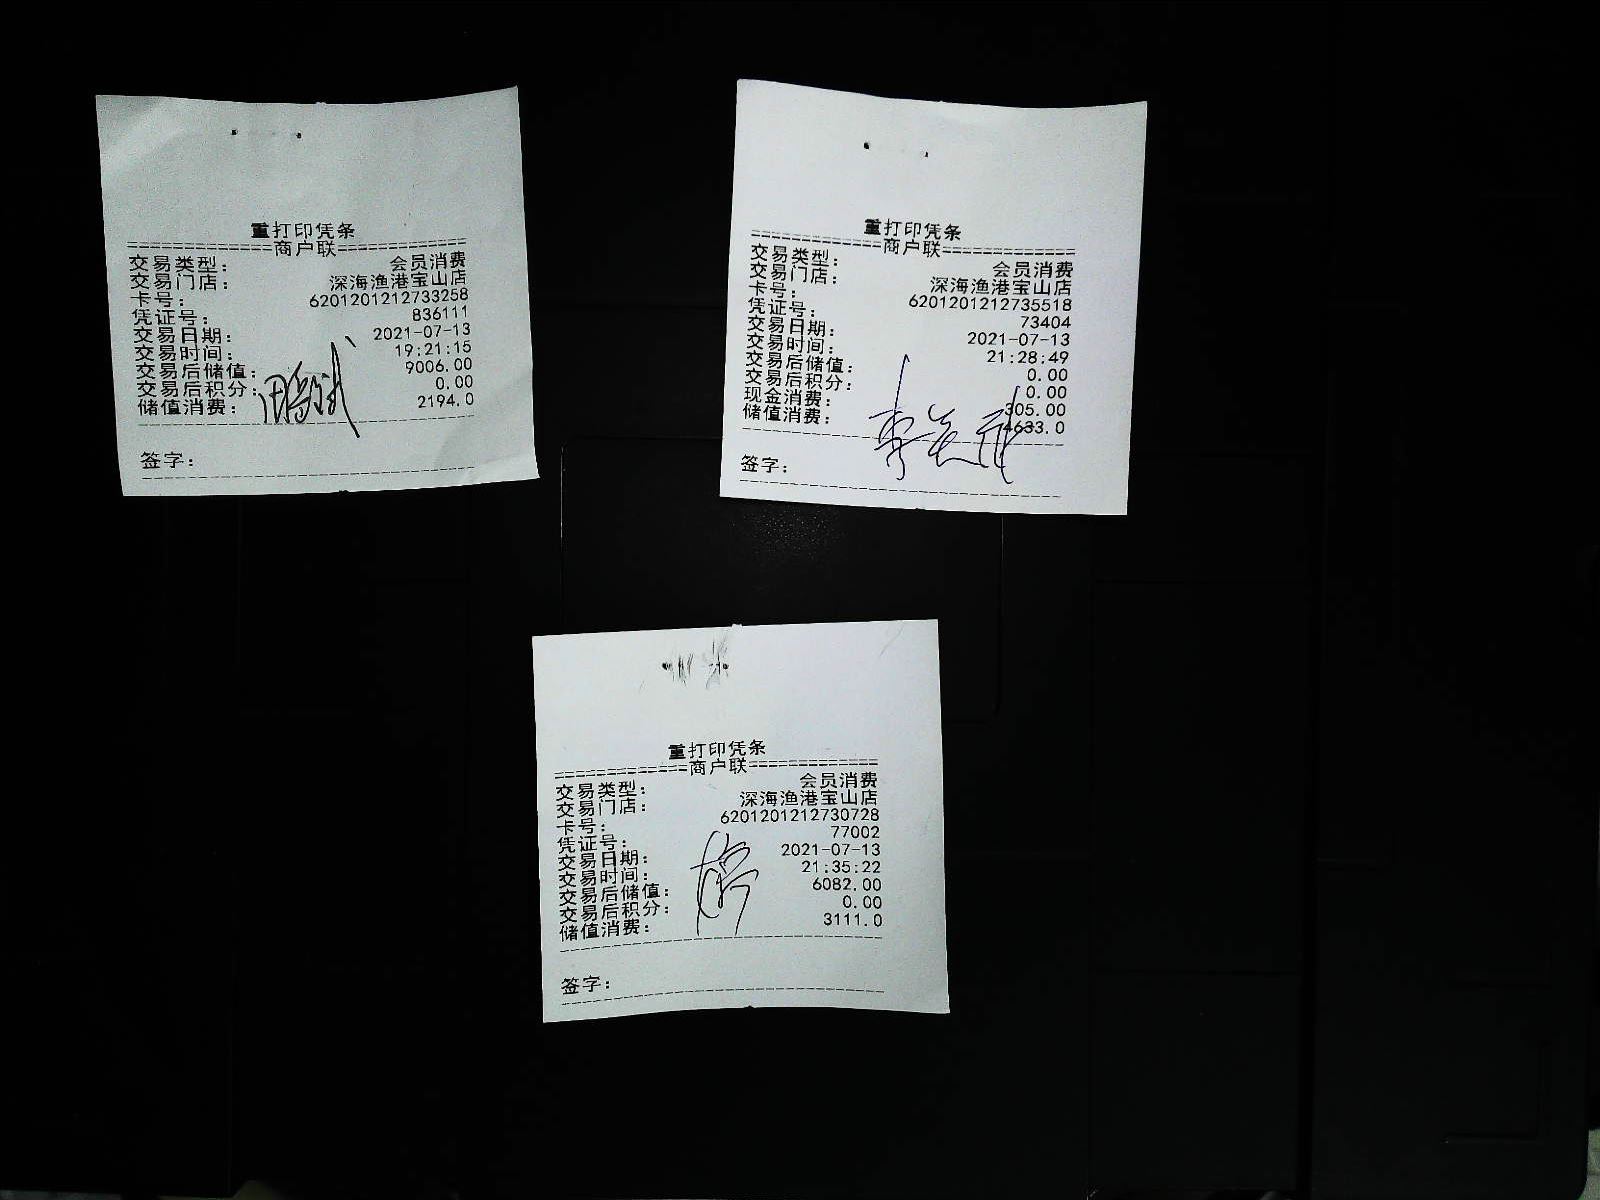 重打印凭条
=============商户联=============
交易类型： 会员消费
交易门店： 深海渔港宝山店
卡号： 6201201212733258
凭证号： 836111
交易日期： 2021-07-13
交易时间： 19:21:15
交易后储值： 9006.00
交易后积分： 0.00
储值消费： 2194.0
签字：
重打印凭条
=============商户联=============
交易类型： 会员消费
交易门店： 深海渔港宝山店
卡号： 6201201212735518
凭证号： 73404
交易日期： 2021-07-13
交易时间： 21:28:49
交易后储值： 0.00
交易后积分： 0.00
现金消费： 305.00
储值消费： 4633.0
签字：
重打印凭条
=============商户联=============
交易类型： 会员消费
交易门店： 深海渔港宝山店
卡号： 6201201212730728
凭证号： 77002
交易日期： 2021-07-13
交易时间： 21:35:22
交易后储值： 6082.00
交易后积分： 0.00
储值消费： 3111.0
签字：